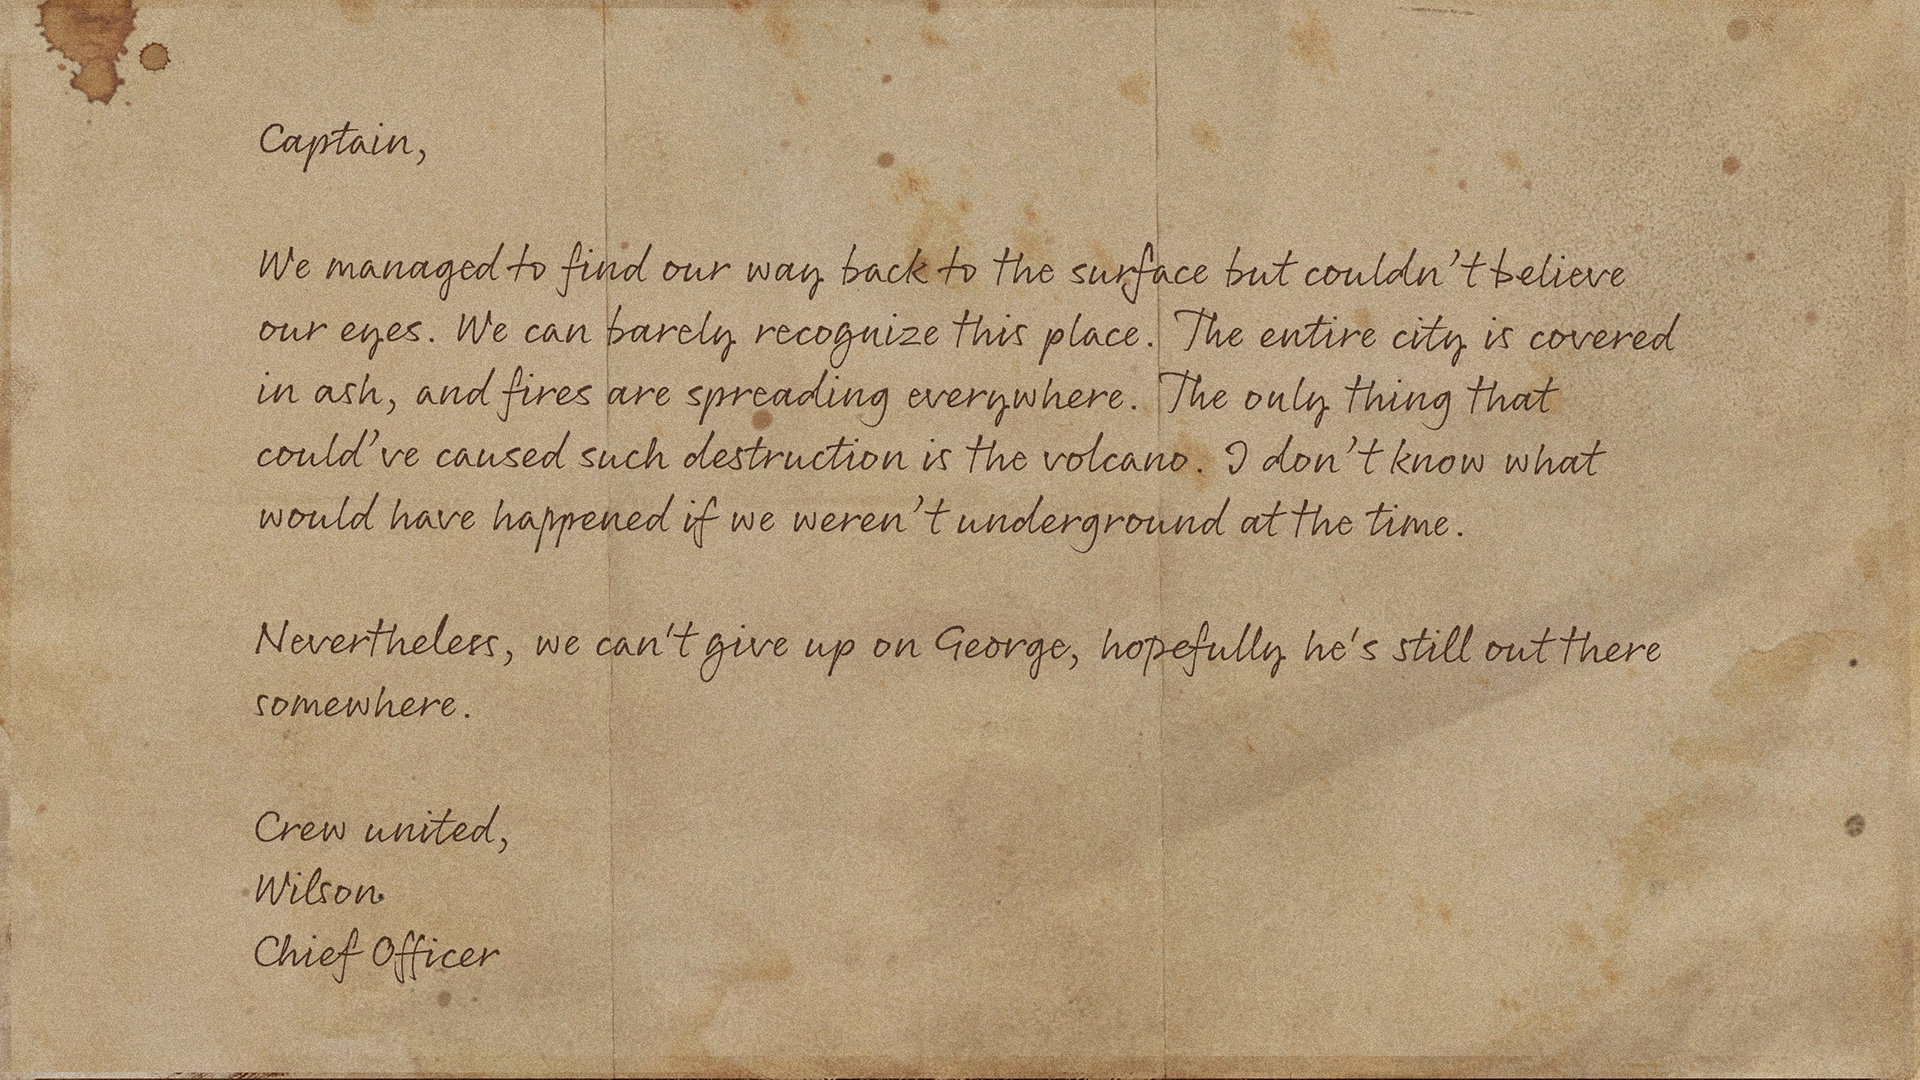 Captain,
We managed to find our way back to the surface but couldn’t believe
our eyes. We can barely recognize this place. The entire city is covered
in ash, and fires are spreading everywhere. The only thing that
could’ve caused such destruction is the volcano. I don’t know what
would have happened if we weren’t underground at the time.
Nevertheless, we can't give up on George, hopefully he's still out there
somewhere.
Crew united,
Wilson
Chief Officer